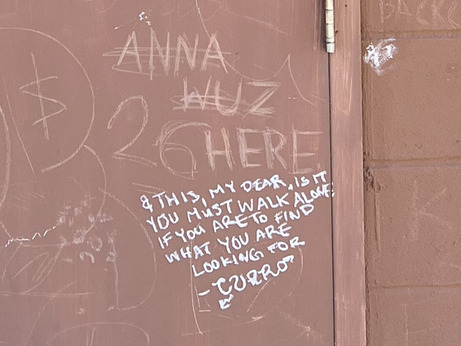 $
ANNA
WUZ
26 HERE
& THIS, MY DEAR, IS IT
YOU MUST WALK ALONE
IF YOU ARE TO FIND
WHAT YOU ARE
LOOKING FOR
K